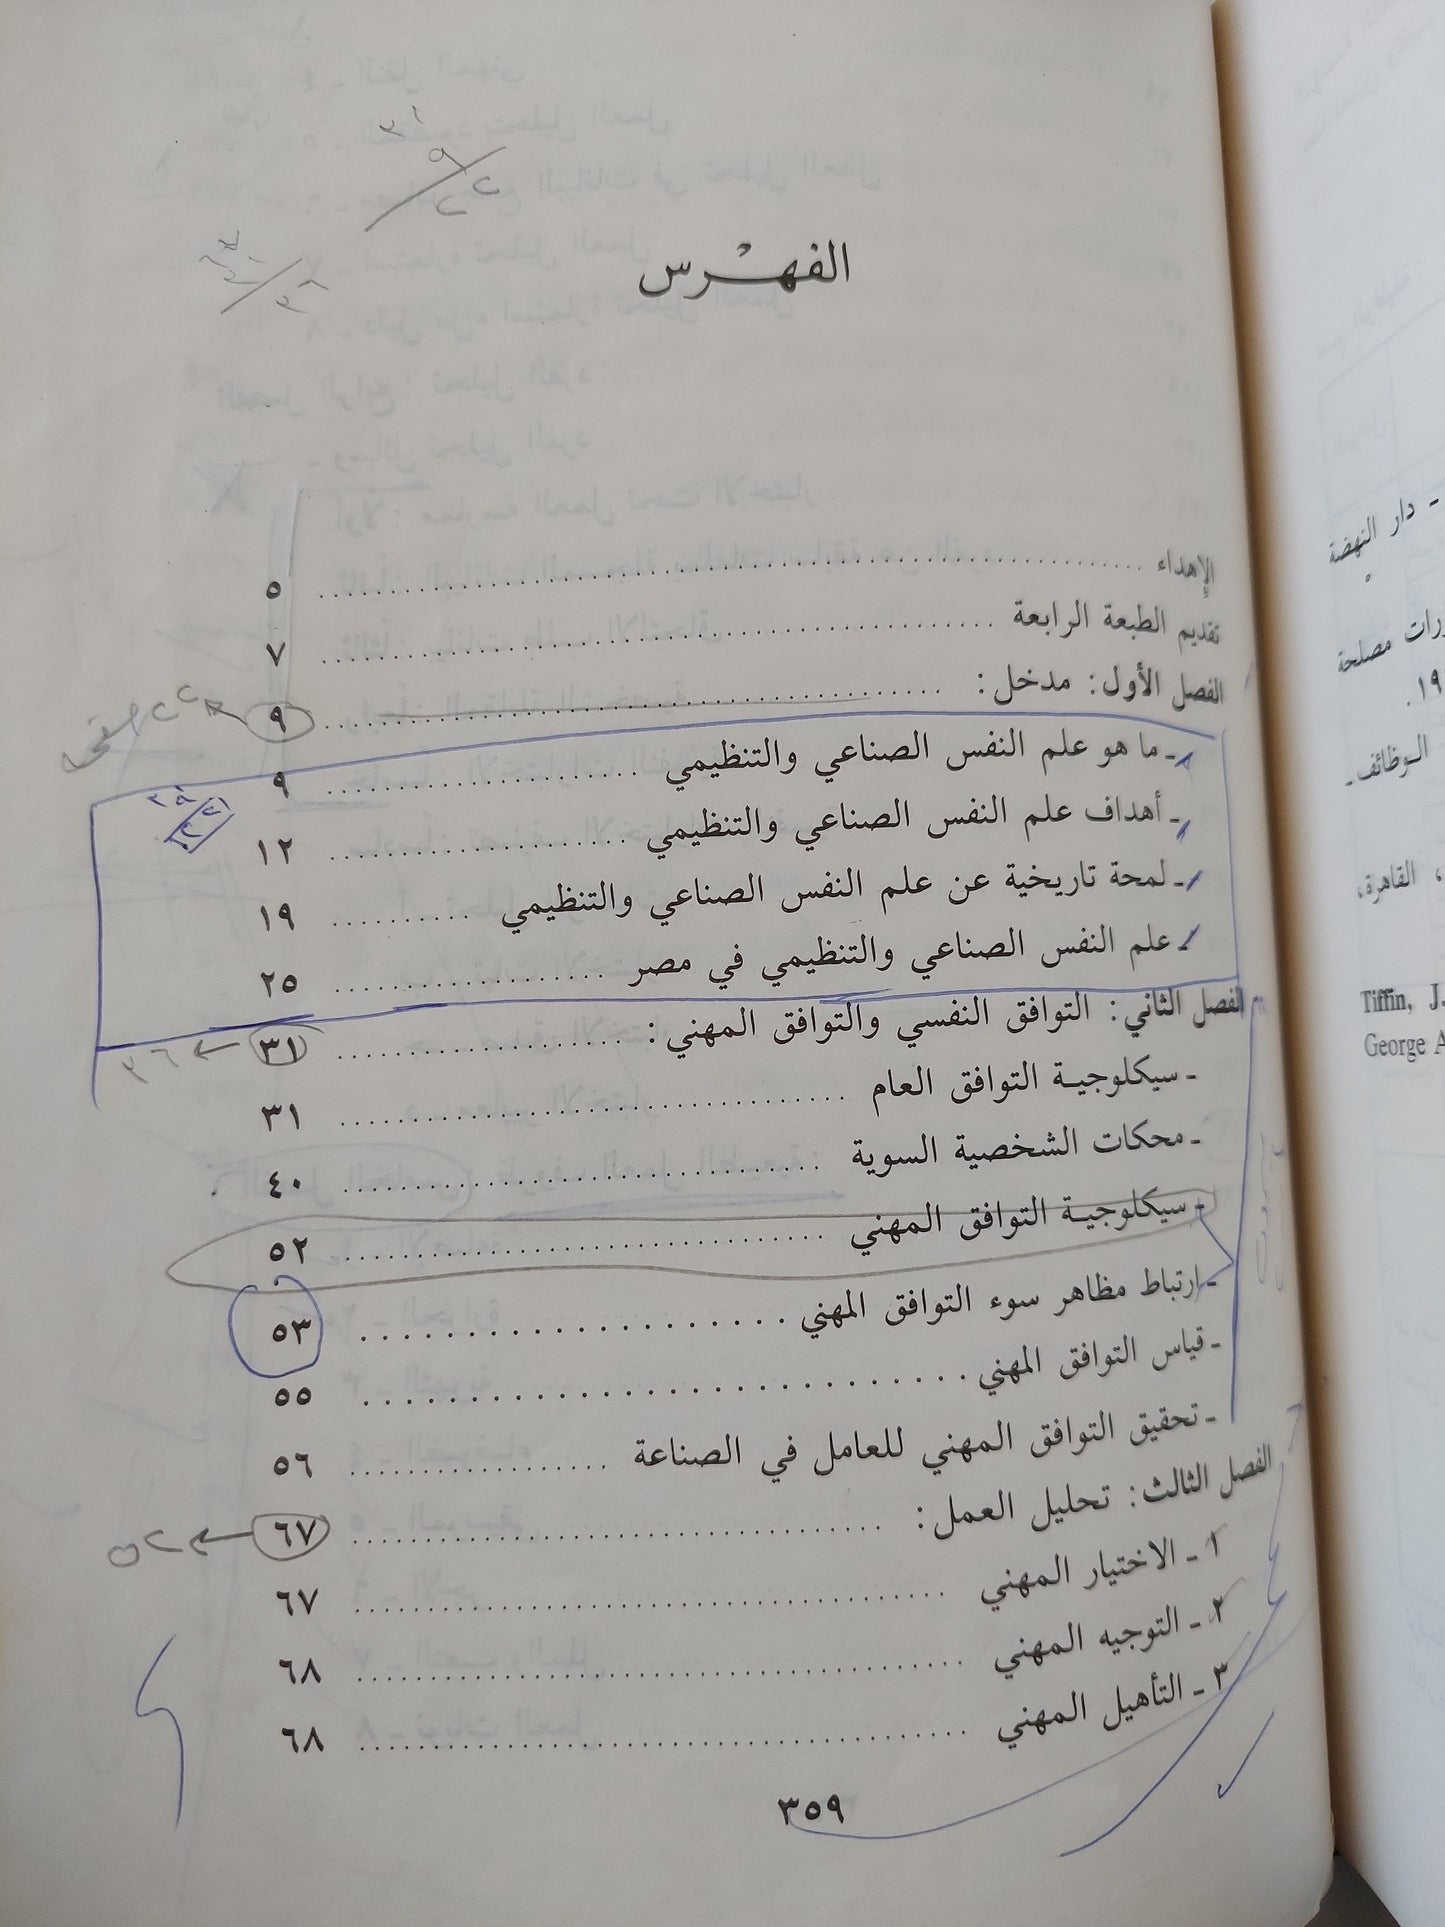 الفهرس
الإهداء ........ ٥
تقديم الطبعة الرابعة ........ ٧
الفصل الأول: مدخل: ........ ٩
ـ ما هو علم النفس الصناعي والتنظيمي ........ ٩
ـ أهداف علم النفس الصناعي والتنظيمي ........ ١٢
ـ لمحة تاريخية عن علم النفس الصناعي والتنظيمي ........ ١٩
ـ علم النفس الصناعي والتنظيمي في مصر ........ ٢٥
الفصل الثاني: التوافق النفسي والتوافق المهني: ........ ٣١
ـ سيكلوجية التوافق العام ........ ٣١
ـ محكات الشخصية السوية ........ ٤٠
ـ سيكلوجية التوافق المهني ........ ٥٢
ـ ارتباط مظاهر سوء التوافق المهني ........ ٥٣
ـ قياس التوافق المهني ........ ٥٥
ـ تحقيق التوافق المهني للعامل في الصناعة ........ ٥٦
الفصل الثالث: تحليل العمل: ........ ٦٧
١ ـ الاختيار المهني ........ ٦٧
٢ ـ التوجيه المهني ........ ٦٨
٣ ـ التأهيل المهني ........ ٦٨
٣٥٩
ـ دار النهضة
مصلحة
١٩.
الوظائف ـ
، القاهرة،
Tiffin, J.
George A